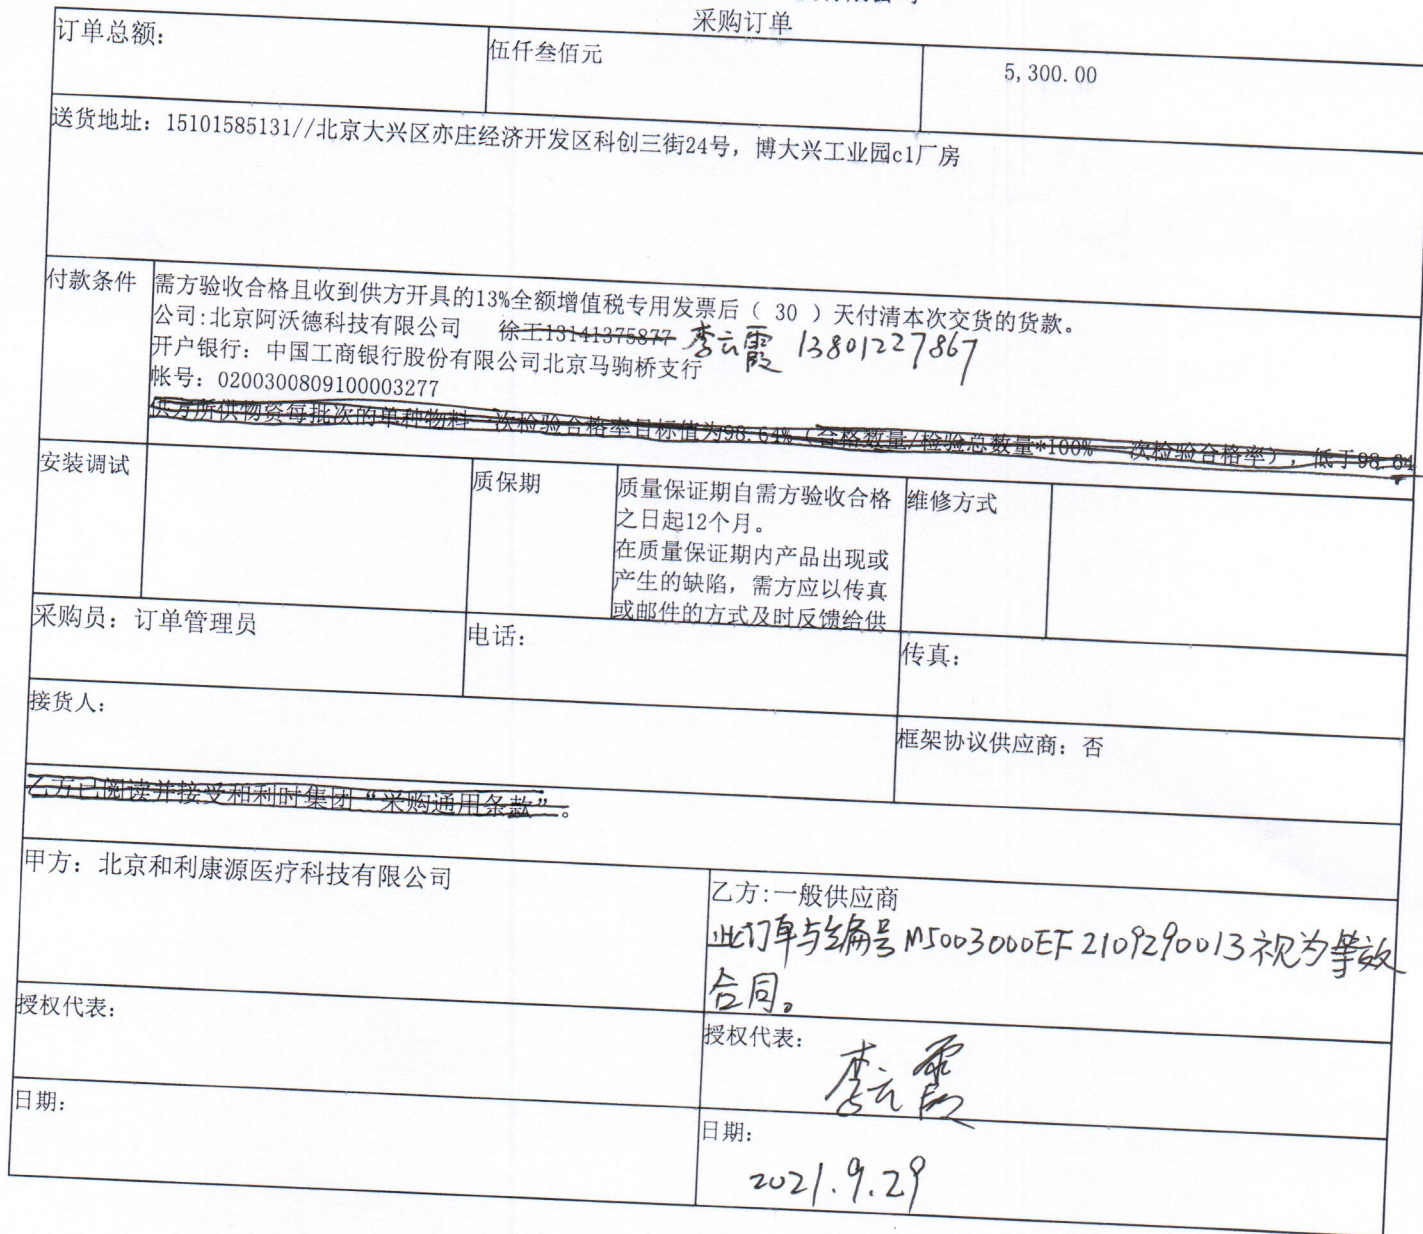 采购订单
订单总额:
伍仟叁佰元
5,300.00
送货地址: 15101585131//北京大兴区亦庄经济开发区科创三街24号, 博大兴工业园c1厂房
付款条件
需方验收合格且收到供方开具的13%全额增值税专用发票后（ 30 ）天付清本次交货的货款。
公司:北京阿沃德科技有限公司 徐工13141375877 李云霞 13801227867
开户银行: 中国工商银行股份有限公司北京马驹桥支行
帐号: 0200300809100003277
供方所供物资每批次的单种物料一次检验合格率目标值为98.64%（合格数量/检验总数量*100% 一次检验合格率）, 低于98.64
安装调试
质保期
质量保证期自需方验收合格
之日起12个月。
在质量保证期内产品出现或
产生的缺陷, 需方应以传真
或邮件的方式及时反馈给供
维修方式
采购员: 订单管理员
电话:
传真:
接货人:
框架协议供应商: 否
乙方已阅读并接受和利时集团“采购通用条款”。
甲方: 北京和利康源医疗科技有限公司
乙方:一般供应商
此订单与编号M5003000EF2109290013视为等效
合同。
授权代表:
授权代表:
李云霞
日期:
日期:
2021.9.29